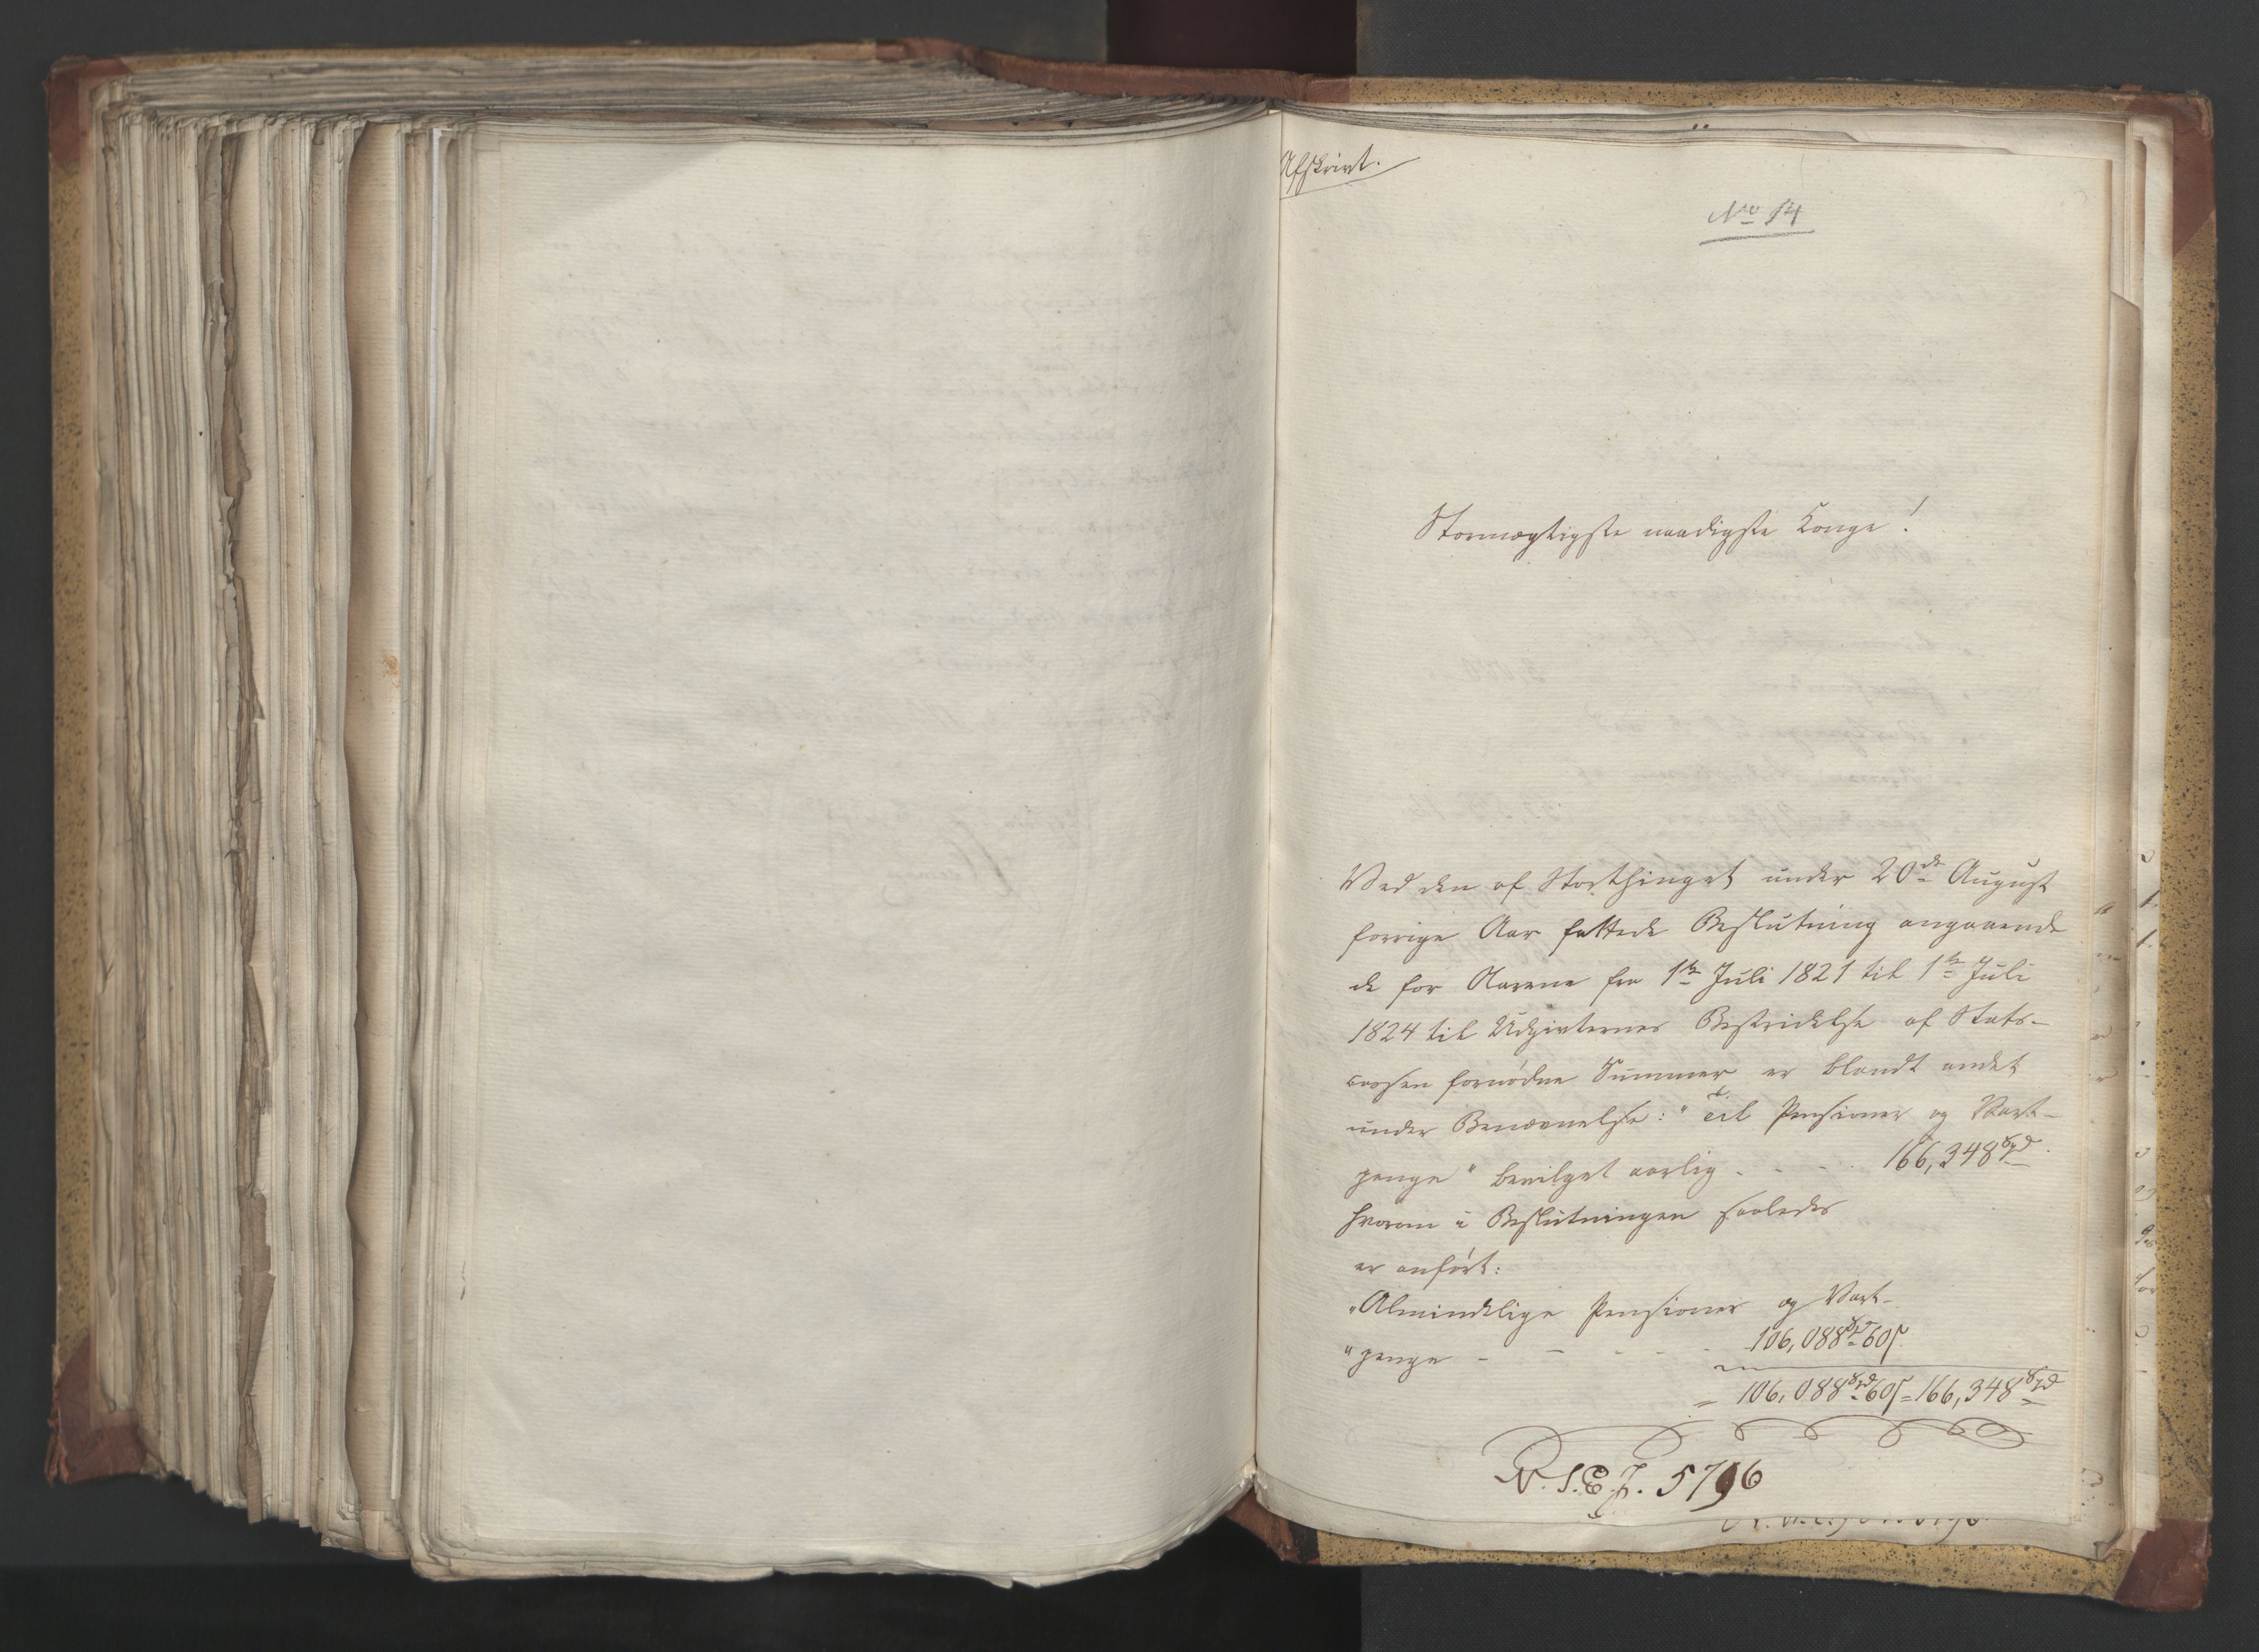 Afskrivt.
No 14
Stormægtigste naadigste Konge!
Ved den af Storthinget under 20de August
forrige Aar fattede Beslutning angaaende
de for Aarene fra 1te Juli 1821 til 1te Juli
1824 til Udgivternes Bestridelse af Stats-
cassen fornødne Summer er blandt andet
under Benævnelse: "Til Pensioner og Vart-
penge" bevilget aarlig - - - - 166,348 Spd
hvorom i Beslutningen saaledes
er anført:
"Almindelige Pensioner og Vart-
"penge - - - - - 106,088 Spd 60 s
= 106,088 Spd 60 s = 166,348 Spd
N. S. E. J. 5796